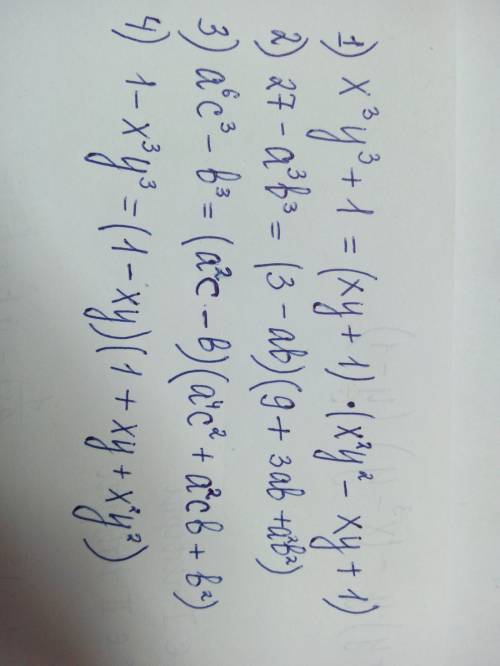 1) x³y³ + 1 = (xy + 1) · (x²y² - xy + 1)
2) 27 - a³b³ = (3 - ab)(9 + 3ab + a²b²)
3) a⁶c³ - b³ = (a²c - b)(a⁴c² + a²cb + b²)
4) 1 - x³y³ = (1 - xy)(1 + xy + x²y²)